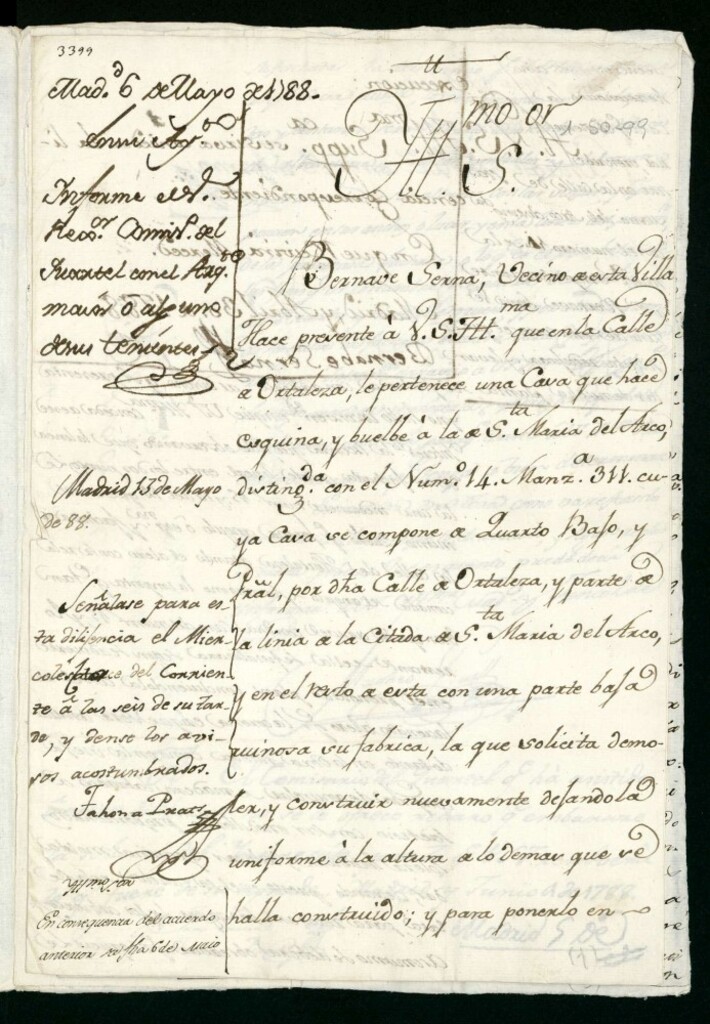 3399
Mad.d 6 de Mayo de 1788.
En su Ay.to
Informe el S.r
Rexo.or Comis.o del
Quartel con el Arq.to
maior ó alguno
de sus tenientes
Madrid 13 de Mayo
de 88.
Señalase para es-
ta dilixencia el Mier-
coles catorce del Corrien-
te á las seis de su tar-
de, y dense los avi-
sos acostumbrados.
Yll.mo Sor
En consequencia del acuerdo
anterior de fha 6 de Maio
Ill.mo S.or
Bernave Serna, Vecino de esta Villa
Hace presente à V.S.Ill.ma que en la Calle
de Ortaleza, le pertenece una Casa que hace
esquina, y buelbe à la de S.ta Maria del Arco,
disting.da con el Num.o 14. Manz.a 311. cu-
ya Casa se compone de Quarto Bajo, y
Pral, por dha Calle de Ortaleza, y parte de
la linia de la Citada de S.ta Maria del Arco,
y en el resto de esta con una parte baja
ruinosa su fabrica, la que solicita demo-
ler, y construir nuevamente dejandola
uniforme à la altura de lo demas que se
halla construido; y para ponerlo en